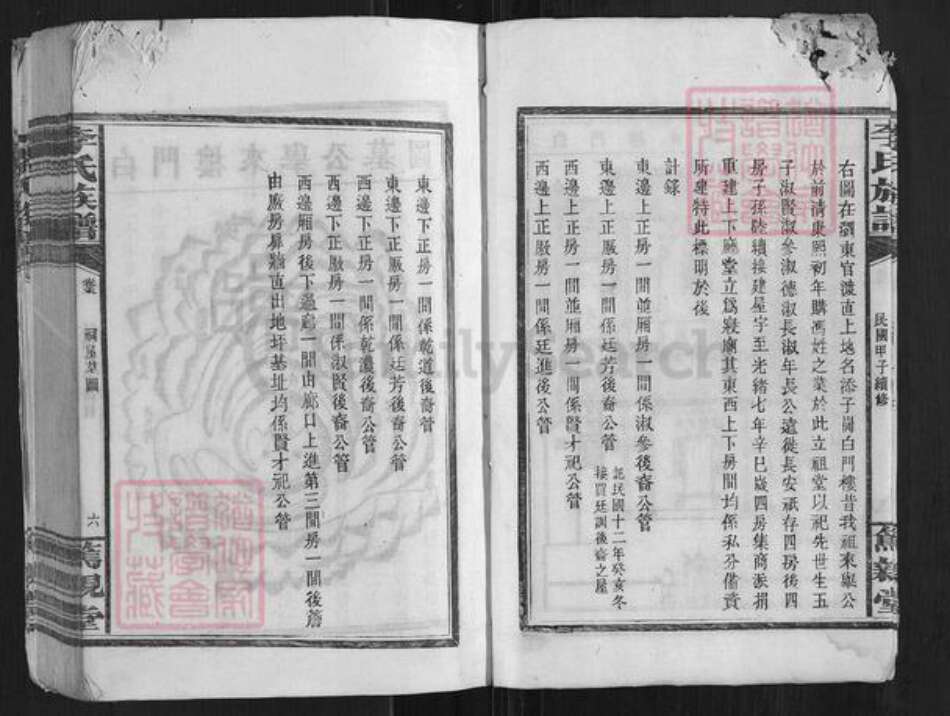 李氏族譜
民國甲子續修
篤親堂
右圖在瀏東官渡直上地名添子岡白門樓昔我祖來與公
於前清康熙初年購馮姓之業於此立祖堂以祀先世生五
子淑賢淑參淑德淑長淑年長公遠徙長安祇存四房後四
房子孫陸續接建屋宇至光緒七年辛巳歲四房集商派捐
重建上下廳堂立為寢廟其東西上下房間均係私分備資
所建特此標明於後
計錄
東邊上正房一間並廂房一間係淑參後裔公管
東邊上正廒房一間係廷芳後裔公管 記民國十二年癸亥冬
接買廷訓後裔之屋
西邊上正房一間並廂房一間係賢才祀公管
西邊上正廒房一間係廷進後公管
東邊下正房一間係乾道後裔管
東邊下正廒房一間係廷芳後裔公管
西邊下正房一間係乾濃後裔公管
西邊下正廒房一間係淑賢後裔公管
西邊廂房後下邊倉一間由廊口上進第三間房一間後簷
由廒房扉牆直出地圩基址均係賢才祀公管
李氏族譜
祠屋草圖
六
篤親堂